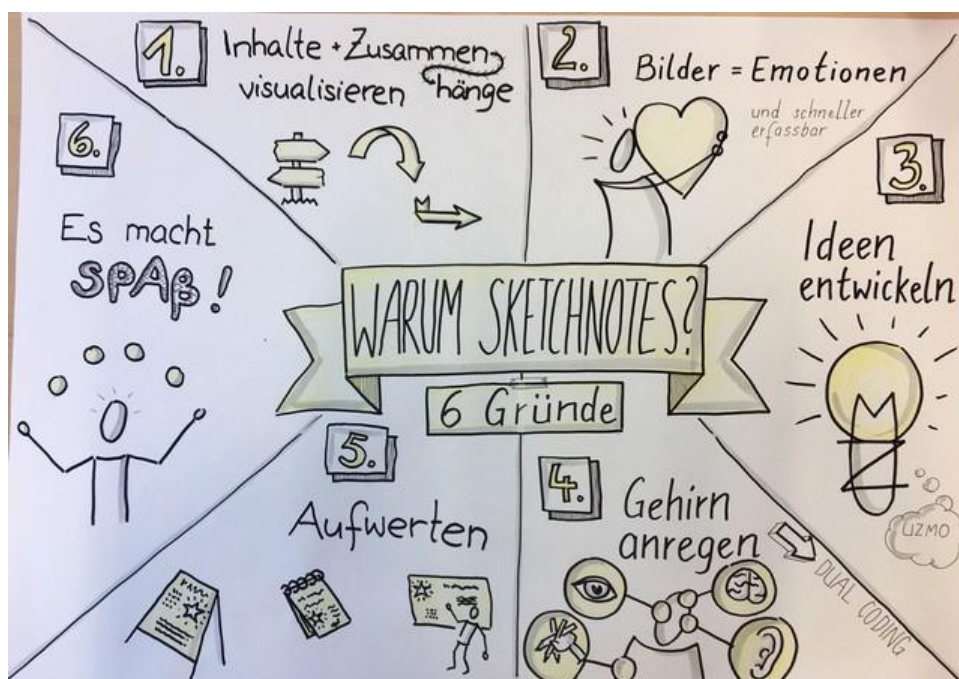 WARUM SKETCHNOTES?
6 Gründe
1.
Inhalte + Zusammen
visualisieren hänge
2.
Bilder = Emotionen
und schneller
erfassbar
3.
Ideen
entwickeln
UZMO
4.
Gehirn
anregen
DUAL CODING
5.
Aufwerten
6.
Es macht
SPAß!